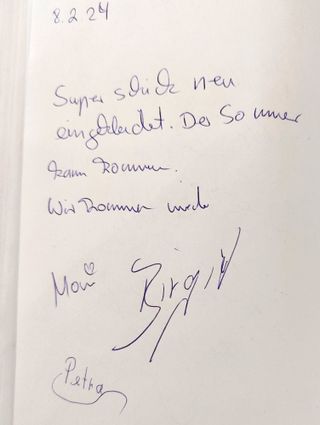 8.2.24
Super schick neu
eingekleidet. Der Sommer
kann kommen.
Wir kommen wieder
Birgit
Petra